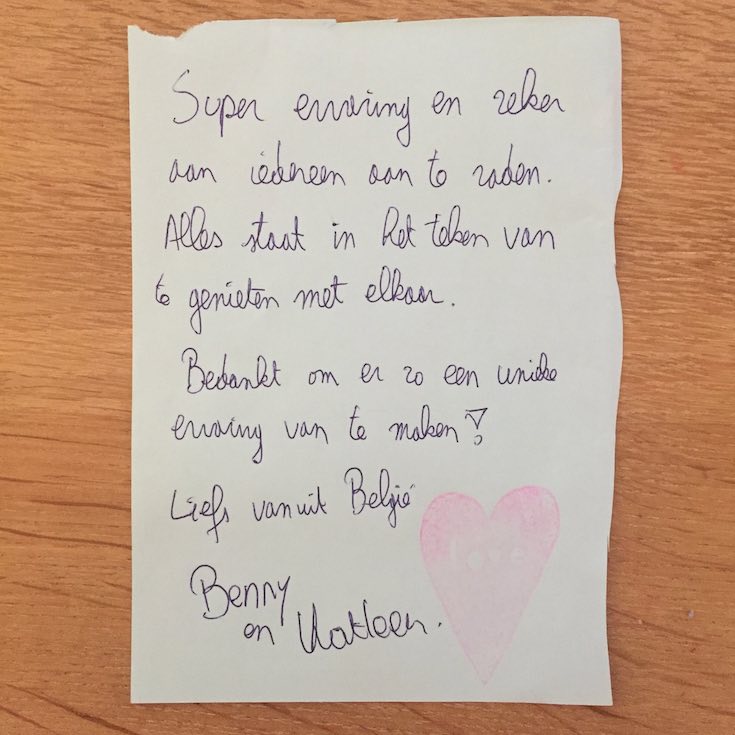 Super ervaring en zeker
aan iedereen aan te raden.
Alles staat in het teken van
te genieten met elkaar.
Bedankt om er zo een unieke
ervaring van te maken!
Liefs vanuit België
love
Benny
en Katleen.